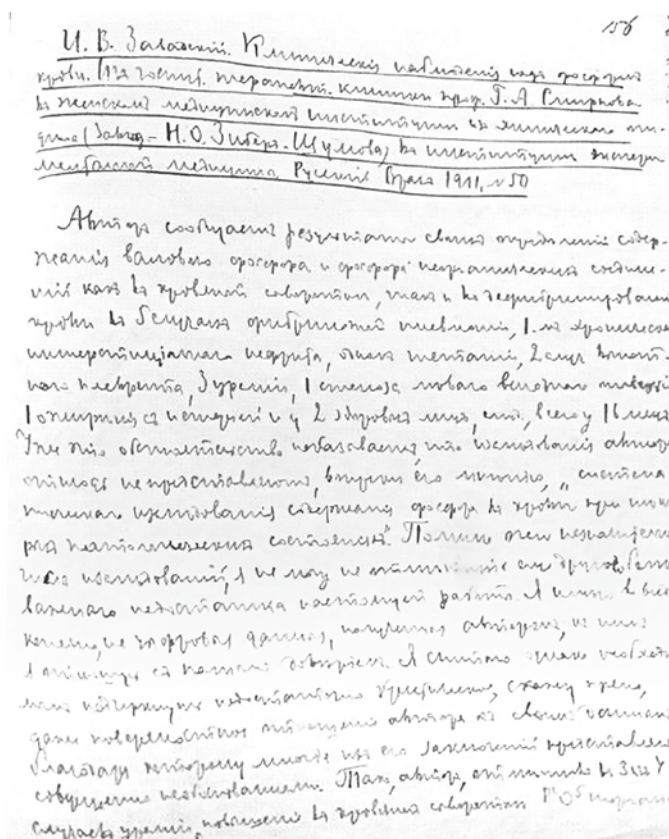 156
И. В. Завадский. Клиническія наблюденія надъ фосфоромъ
крови. (Изъ госпит. терапевт. клиники проф. Г. А. Смирнова
въ женскомъ медицинскомъ институтѣ и изъ химическаго от-
дѣла (Завѣд. – Н. О. Зиберъ-Шумова) въ институтѣ экспери-
ментальной медицины. Русскій Врачъ 1911, №50
Авторъ сообщаетъ результаты своихъ опредѣленій содер-
жанія валового фосфора и фосфора неорганическихъ соедине-
ній какъ въ кровяной сывороткѣ, такъ и въ дефибринированной
крови въ 6 случаяхъ фибринозной пневмоніи, 1-мъ хроническаго
интерстиціальнаго нефрита, тетаніи, 2 случ.
плеврита, 3 уреміи, 1 стеноза лѣваго венознаго
1 ожирѣнія и у 2 здоровыхъ лицъ, всего у 16 лицъ
Уже это обстоятельство показываетъ, что изслѣдованія автора
отнюдь не представляютъ, вопреки его мнѣнію, „система-
тическаго изслѣдованія содержанія фосфора въ крови при нѣкото-
рыхъ патологическихъ состояніяхъ“. Помимо
числа изслѣдованій, я не могу не отмѣтить еще другого, болѣе
важнаго недостатка настоящей работы. Я имѣю въ виду
конечно, не цифровыя данныя, полученныя авторомъ, къ нимъ
я отношусь съ полнымъ довѣріемъ. Я считаю однако необходи-
мымъ подчеркнуть недостаточно критическое, скажу прямо,
даже поверхностное отношеніе автора къ своимъ
благодаря которому многія изъ его заключеній представляются
совершенно необоснованными. Такъ, авторъ, отмѣтивъ въ 3
случаяхъ уреміи, повышеніе въ кровяной сывороткѣ